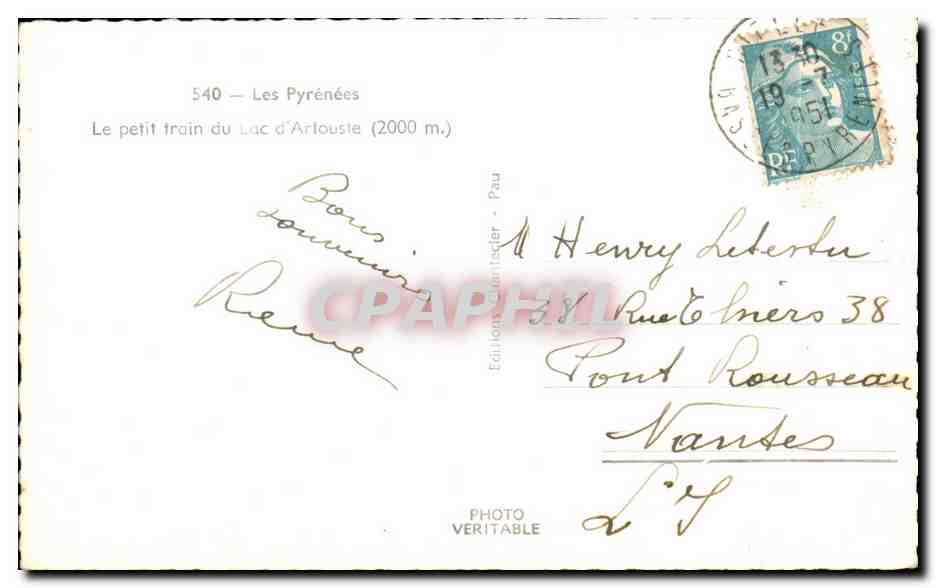 540 — Les Pyrénées
Le petit train du Lac d'Artouste (2000 m.)
Bons
souvenirs
Editions Chantecler - Pau
M Henry Letertu
38 Rue Thiers 38
Pont Rousseau
Nantes
L I
PHOTO
VERITABLE
8f
RF
13 30
19 - 7
1951
CPAPHIL